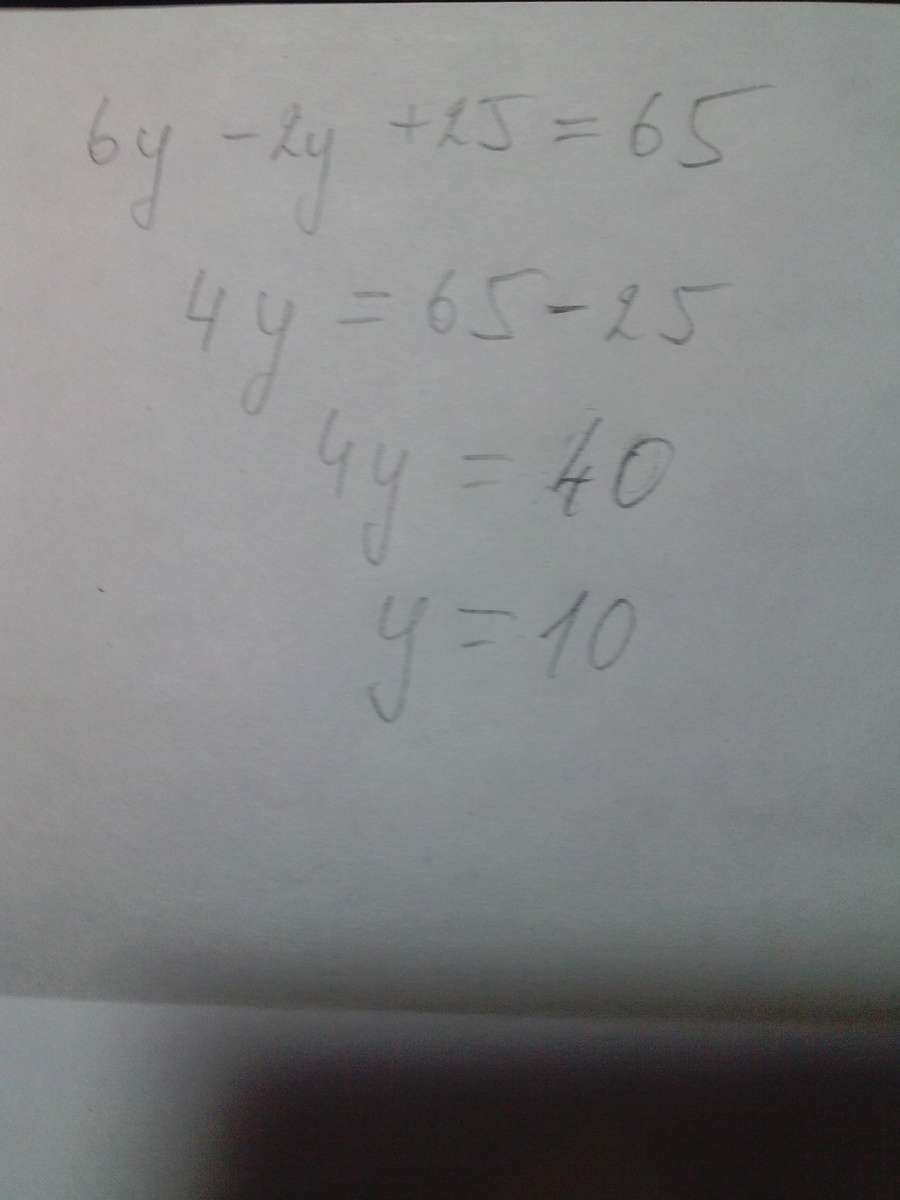 6y - 2y + 25 = 65
4y = 65 - 25
4y = 40
y = 10